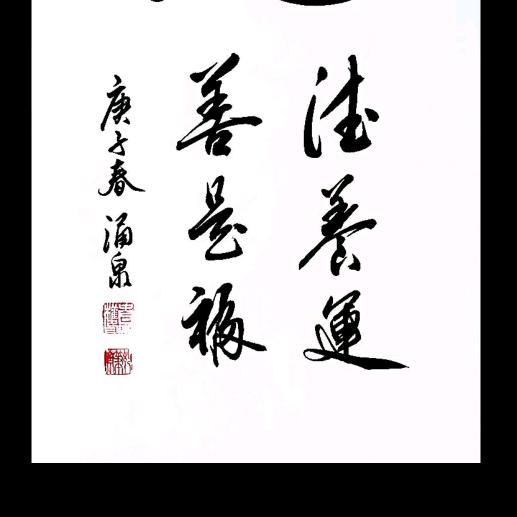 德養運
善是福
庚子春 涌泉